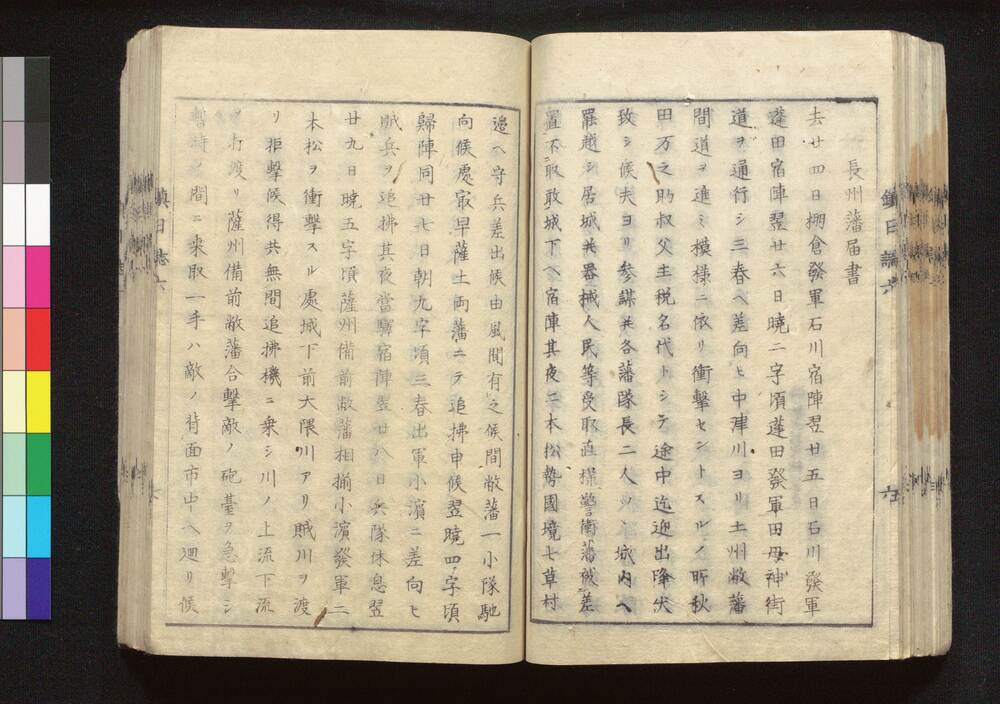 長州藩届書
去廿四日棚倉發軍石川宿陣翌廿五日石川發軍
蓬田宿陣翌廿六日曉二字頃蓬田發軍田母神街
道ヲ通行シ三春ヘ差向ヒ中津川ヨリ土州敝藩
間道ヲ進ミ模様ニ依リ衝擊セントスルノ所秋
田万之助叔父主税名代トシテ途中迄迎出降伏
致シ候夫ヨリ參謀并各藩隊長二人ツヽ城内ヘ
罷越シ居城并器械人民等受取直様警衛藩就差
置不取敢城下ヘ宿陣其夜二本松勢國境七草村
邊ヘ守兵差出候由風聞有之候間敝藩一小隊馳
向候處最早薩土両藩ニテ追拂申候翌曉四字頃
歸陣同廿七日朝九字頃三春出軍小濱ニ差向ヒ
賊兵ヲ追拂其夜當驛宿陣翌廿八日兵隊休息翌
廿九日曉五字頃薩州備前敝藩相揃小濱發軍二
本松ヲ衝擊スル處城下前大隈川アリ賊川ヲ渡
リ拒擊候得共無間追拂機ニ乗シ川ノ上流下流
打渡リ薩州備前敝藩合擊敵ノ砲臺ヲ急擊シ
暫時ノ間ニ乗取一手ハ敵ノ背面市中ヘ廻リ候
鎮日誌六
六
鎮日誌六